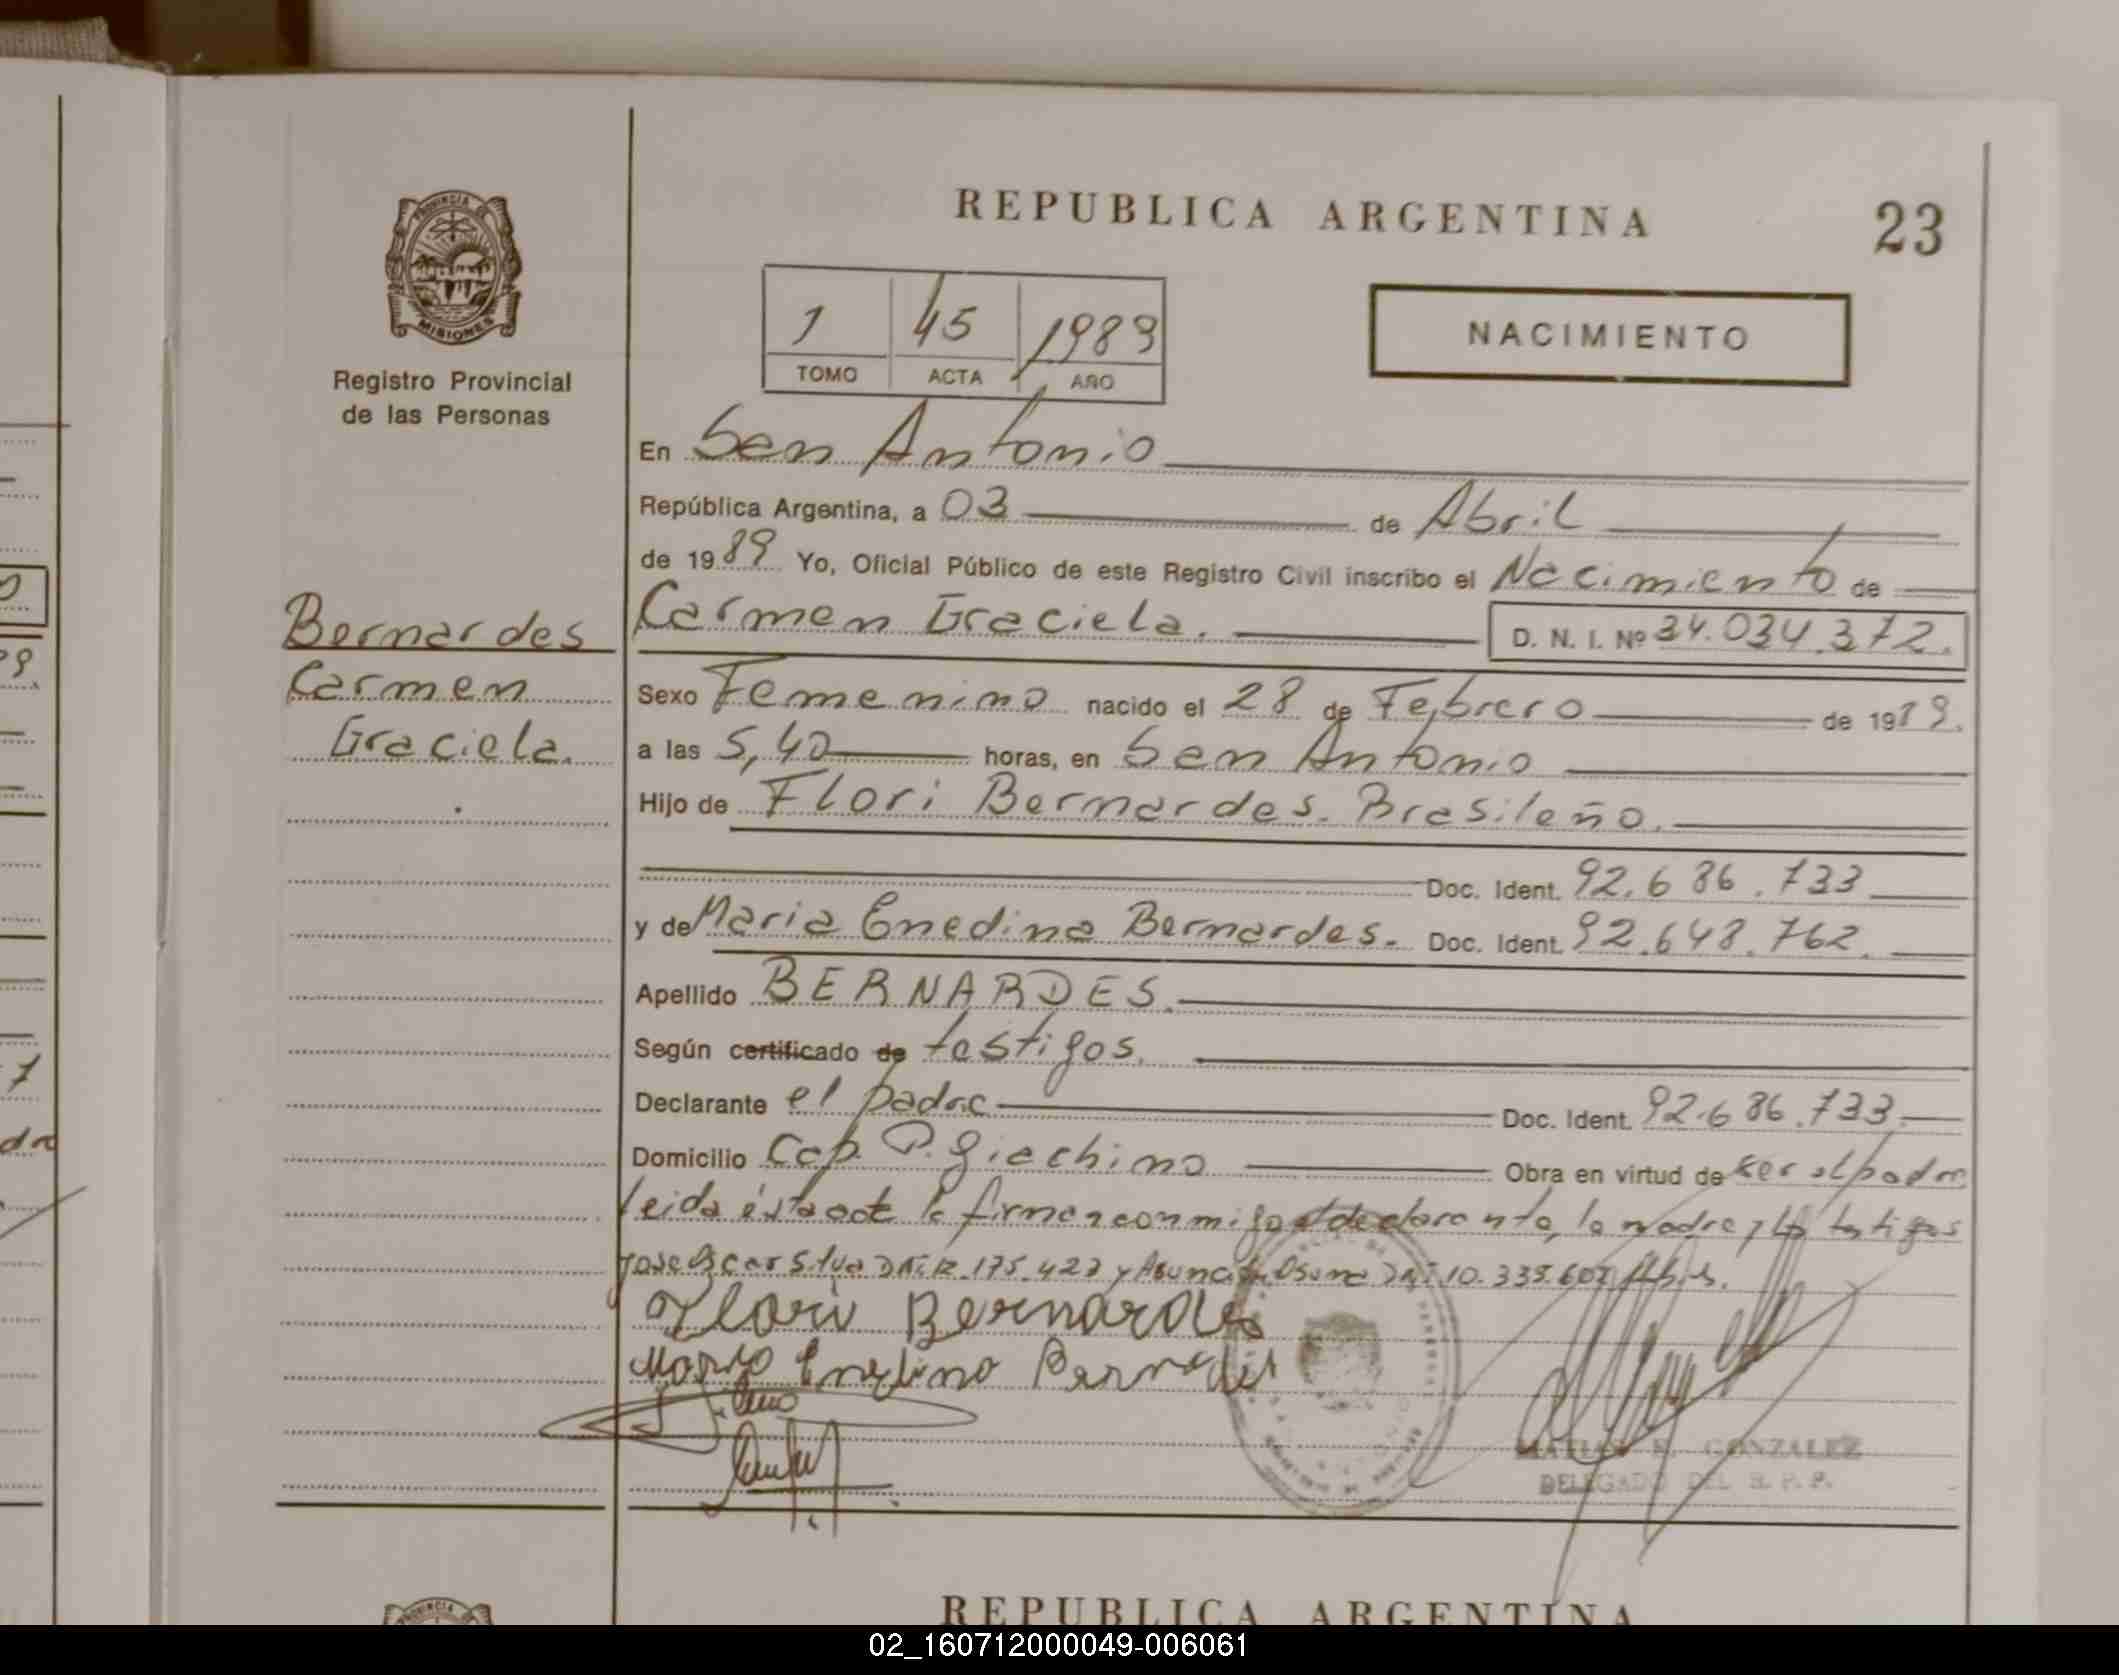 REPUBLICA ARGENTINA
23
PROVINCIA DE
MISIONES
Registro Provincial
de las Personas
1 45 1989
TOMO ACTA AÑO
NACIMIENTO
En San Antonio
República Argentina, a 03 de Abril
de 1989 Yo, Oficial Público de este Registro Civil inscribo el Nacimiento de
Bernardes
Carmen
Graciela.
Carmen Graciela. D. N. I. Nº 34.034.372.
Sexo Femenino nacido el 28 de Febrero de 1989.
a las 5,40 horas, en San Antonio
Hijo de Flori Bernardes. Brasileño.
Doc. Ident. 92.686.733
y de Maria Enedina Bernardes. Doc. Ident. 92.648.762.
Apellido BERNARDES.
Según certificado de testigos.
Declarante el padre Doc. Ident. 92.686.733
Domicilio Cap. P. Giachino Obra en virtud de ser el padre
leida ésta acta la firman conmigo el declarante, la madre y los testigos
Jose Oscar Silva DNI 12.175.427 y Osuna DNI 10.335.607
Flori Bernardes
Bernardes
MATIAS R. GONZALEZ
DELEGADO DEL R. P. P.
PROVINCIA
REPUBLICA ARGENTINA
02_160712000049-006061